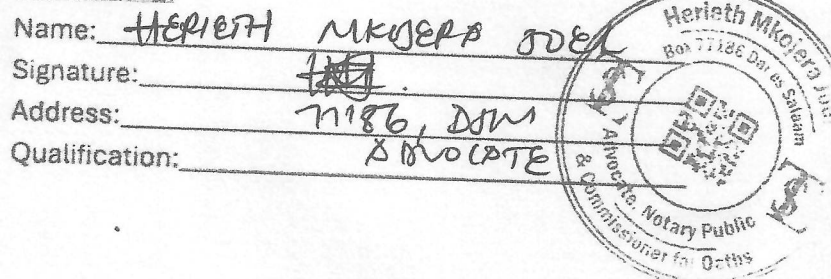 Name: HERIETH MKOJERA JOEL
Signature:
Address: 77186, DSM
Qualification: ADVOCATE
Herieth Mkojera Joel
Box 77186 Dar es Salaam
Advocate, Notary Public
& Commissioner for Oaths